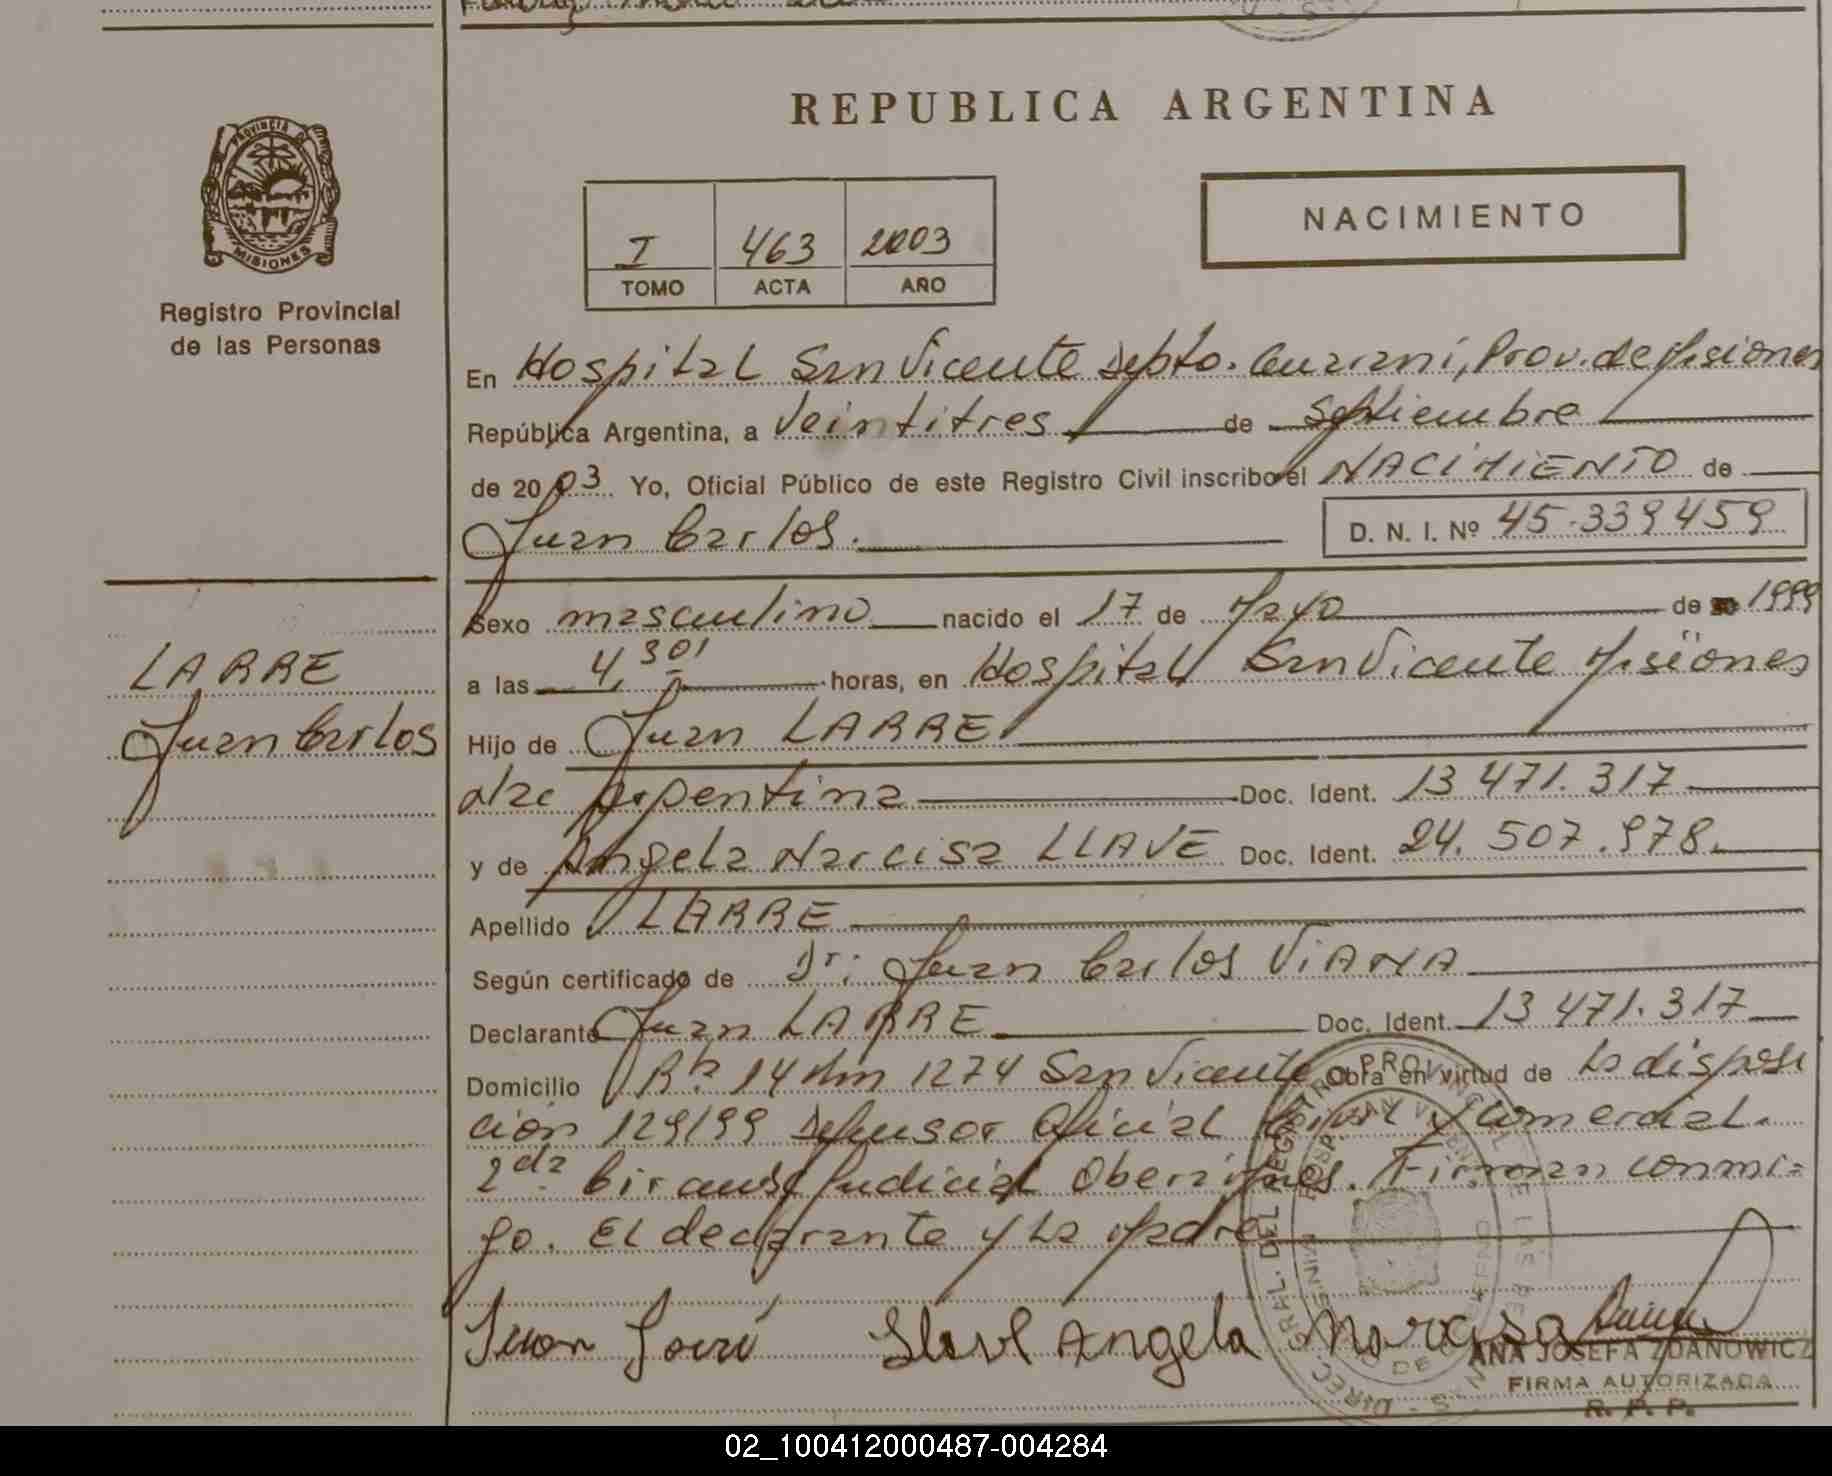 REPUBLICA ARGENTINA
PROVINCIA D
MISIONES
Registro Provincial
de las Personas
I 463 2003
TOMO ACTA AÑO
NACIMIENTO
En Hospital San Vicente Depto. Guarani, Prov. de Misiones
República Argentina, a Veintitres de Septiembre
de 2003. Yo, Oficial Público de este Registro Civil inscribo el NACIMIENTO de
Juan Carlos.
D. N. I. Nº 45.339459
LARRE
Juan Carlos
Sexo masculino nacido el 17 de Mayo de 1999
a las 4,30' horas, en Hospital San Vicente Misiones
Hijo de Juan LARRE
Nac Argentina Doc. Ident. 13 471.317
y de Angela Narcisa LLAVE Doc. Ident. 24.507.978.
Apellido LARRE
Según certificado de Dr: Juan Carlos ViANA
Declarante Juan LARRE Doc. Ident. 13 471.317
Domicilio Rta 14 Km 1274 San Vicente Obra en virtud de la disposi
ción 129/99 Defensor Oficial Civil y Comercial.
2da Judicial Firman conmi=
go. El declarante y la Madre
Juan Llave Angela Narcisa
ANA JOSEFA ZDANOWICZ
FIRMA AUTORIZADA
R. P. P.
02_100412000487-004284